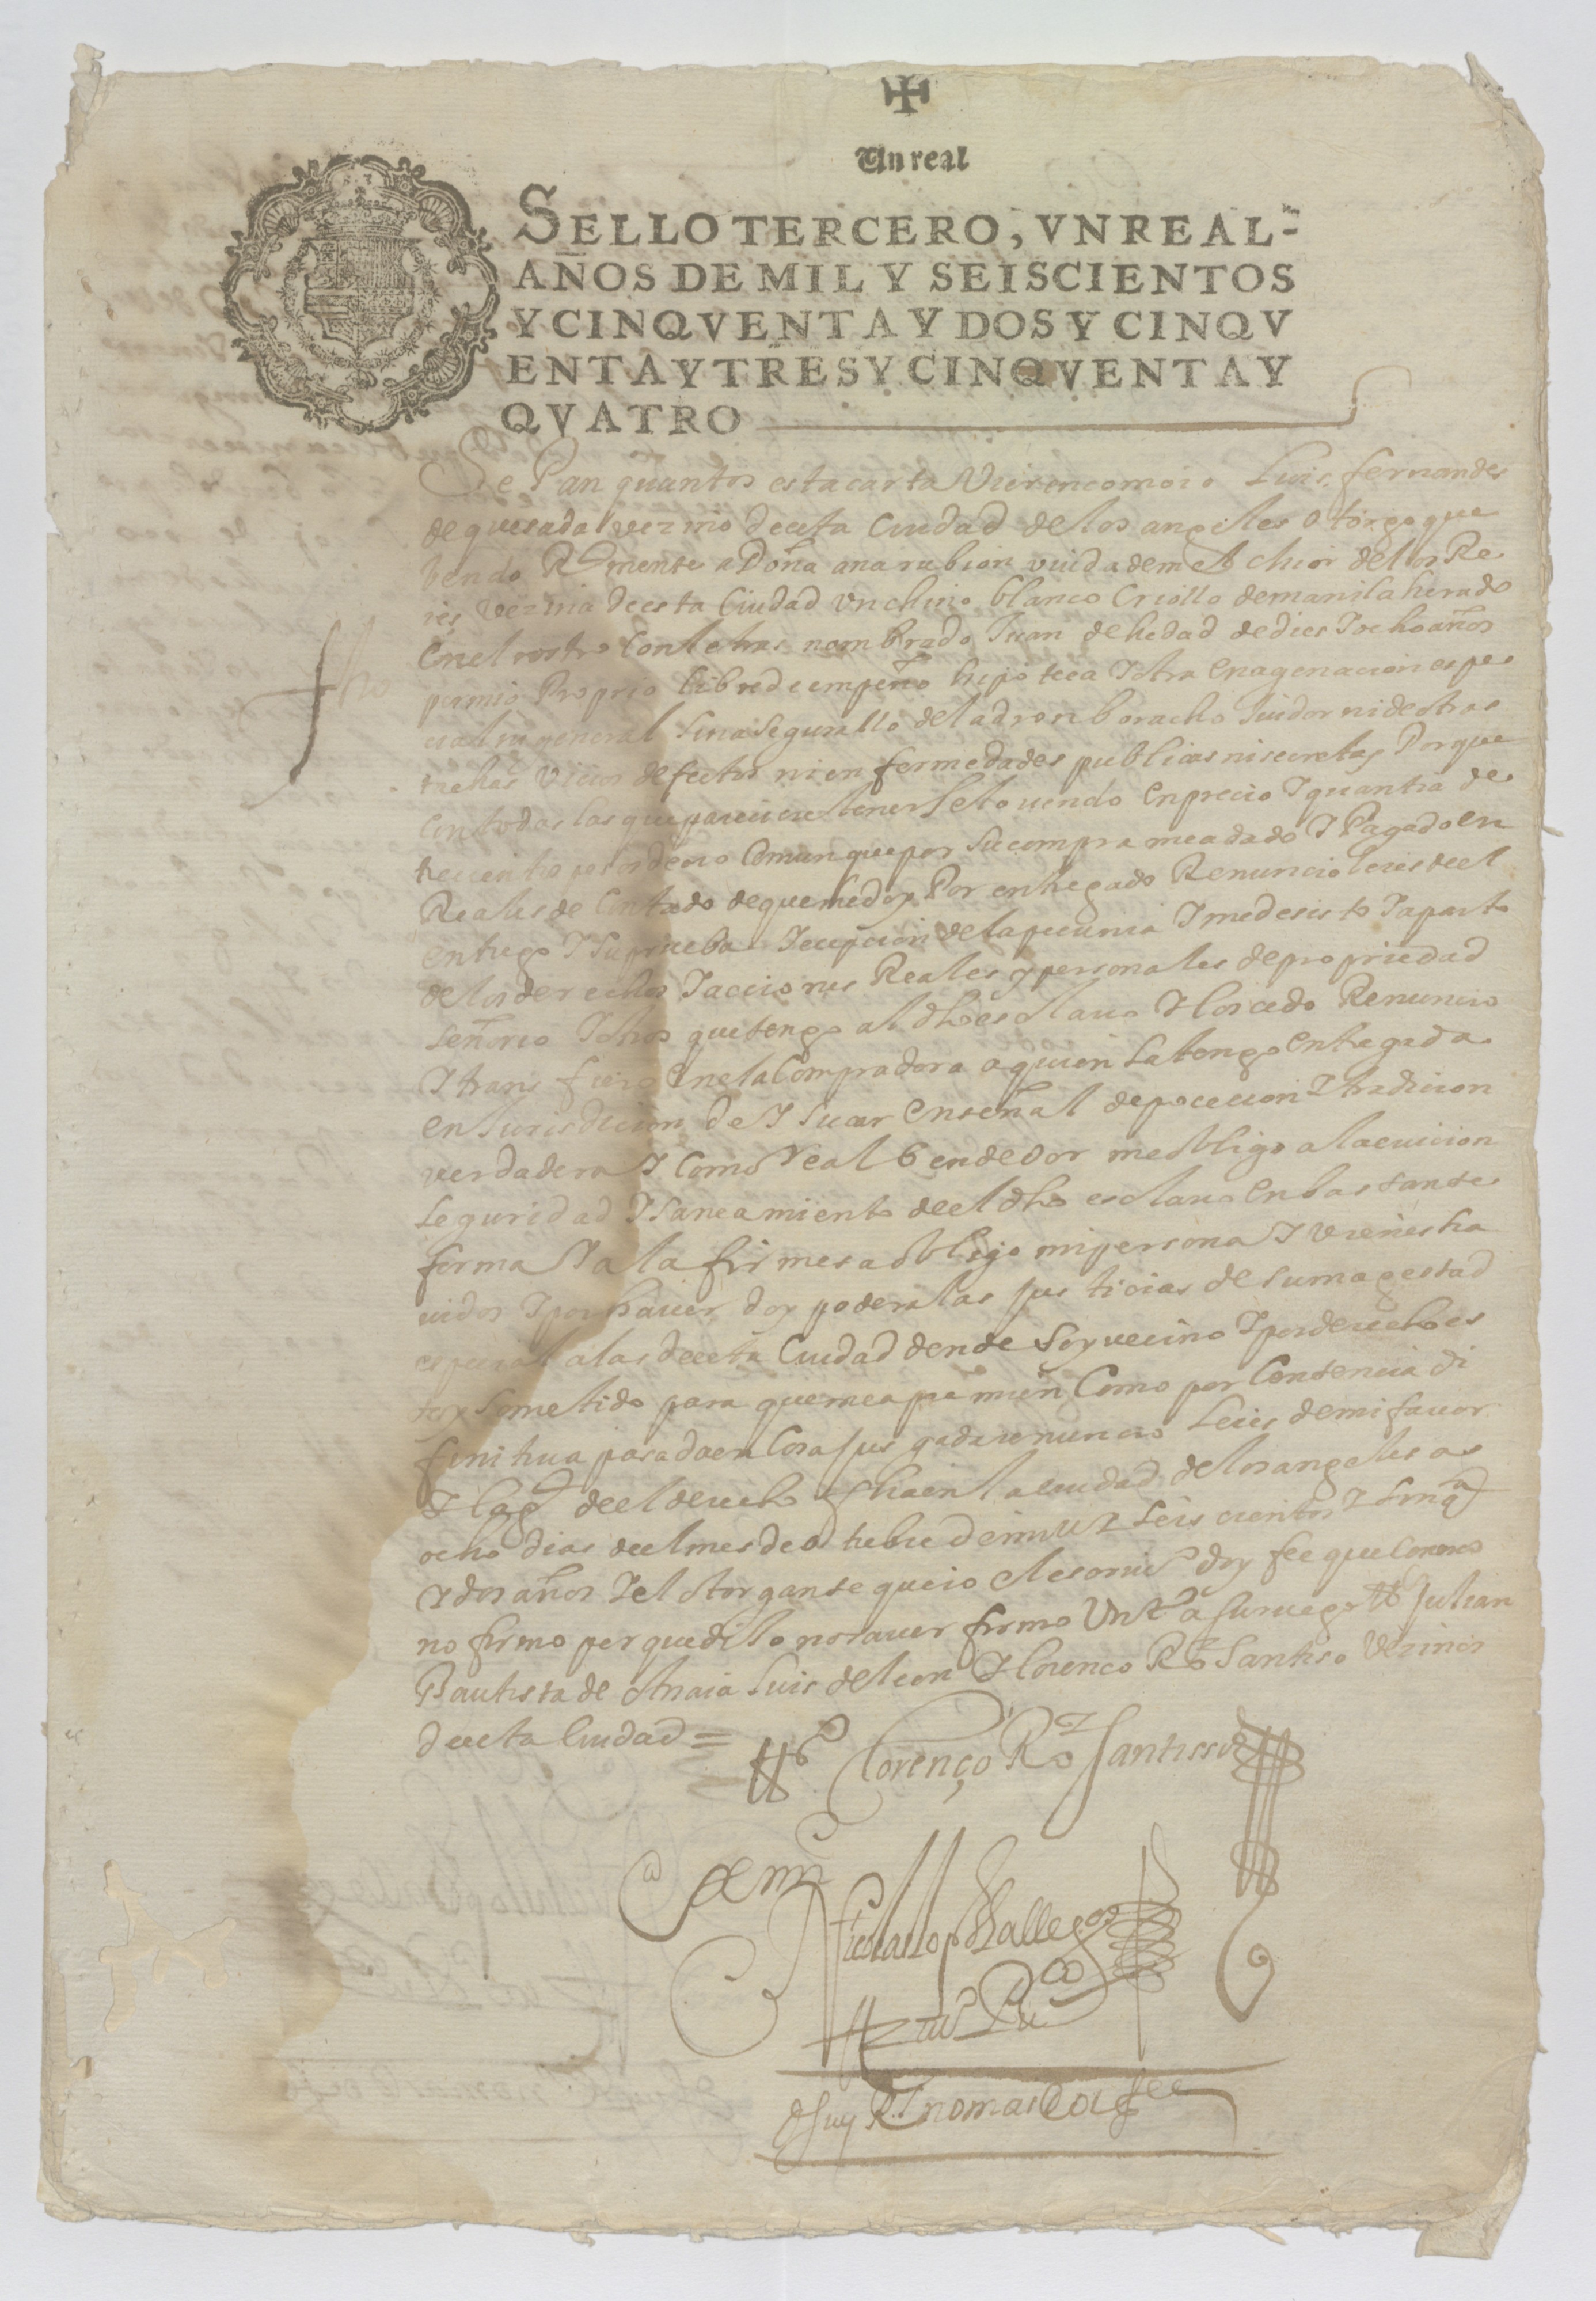 ✠
Un real
SELLO TERCERO, VN REAL-
AÑOS DE MIL Y SEISCIENTOS
Y CINQVENTA Y DOS Y CINQV
ENTA Y TRES Y CINQVENTA Y
QVATRO
Se Pan quantos esta carta Vieren como io Luis fernandes
de quesada vezino de esta Ciudad de los angeles otorgo que
bendo Rlmente a Doña ana rubion viuda de melchior de los Re
ies vezina de esta Ciudad Un chino blanco Criollo de manila herrado
en el rostro Con letras nombrado Juan de hedad de dies I ocho años
por mio Proprio libre de empeño hipoteca I otra enagenacion espe
cial ni general Sin asegurallo de ladron boracho huidor ni de otras
tachas Vicios defectos ni enfermedades publicas ni secretas Porque
Con todas las que pareciere tener Se lo uendo en precio I quantia de
trecientos pesos de oro Comun que por Su compra me a dado I Pagado en
Reales de Contado de que me doy Por entregado Renuncio leies de el
entrego I Su prueba I ecepcion de la pecunia I me desisto I aparto
de los derechos I acciones Reales y personales de propriedad
señorio I otros que tengo al dho esclauo I los cedo Renuncio
I transfiero en la Compradora a quien la tengo entregada
en Señal de posecion I tradicion
verdadera I Como Real bendedor me obligo a la euicion
Seguridad I Saneamiento de el dho esclauo en bastante
forma I a la firmesa obligo mi persona I vienes ha
uidos I por hauer doy poder a las justicias de Su magestad
especial a las de esta Ciudad donde Soy vecino I por derecho es
toy Sometido para que me apremien Como por Sentencia di
finitiua pasada en Cosa jusgada renuncio Leies de mi fauor
I la gl de el derecho fha en la ciudad de los angeles a
ocho dias de el mes de otubre de mill I Seis cientos I Sinqta
I dos años I el otorgante que io el escriuo doy fee que Conosco
no firmo porque dixo no Sauer firmo Un to a Su ruego tos Julian
Bautista de Anaia Luis de leon I lorenco Rz Santiso Vezinos
de esta Ciudad =
to Lorenço Rz Santisso
Ante mi
Nicolas lopes Gallegos